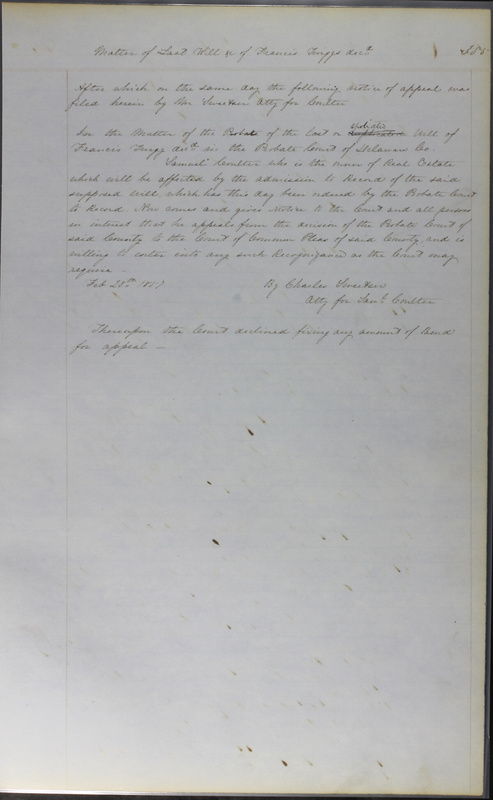 Matter of Last Will &c of Francis Twiggs decd
After which on the same day the following notice of appeal was
filed herein by Mr Sweetser Atty for Coulter
In the Matter of the Probate of the last or Will of
Francis Twiggs decd. in the Probate Court of Delaware Co.
Samuel Coulter who is the owner of Real Estate
which will be affected by the admission to Record of the said
supposed Will which has this day been ordered by the Probate Court
to Record. Now comes and gives Notice to the Court and all persons
in interest that he appeals from the decision of the Probate Court of
said County to the Court of Common Pleas of said County and is
willing to enter into any such Recognizance as the Court may
require —
Feb 28th 1857 By Charles Sweetser
Atty for Saml. Coulter
Thereupon the Court declined fixing any amount of Bond
for appeal —